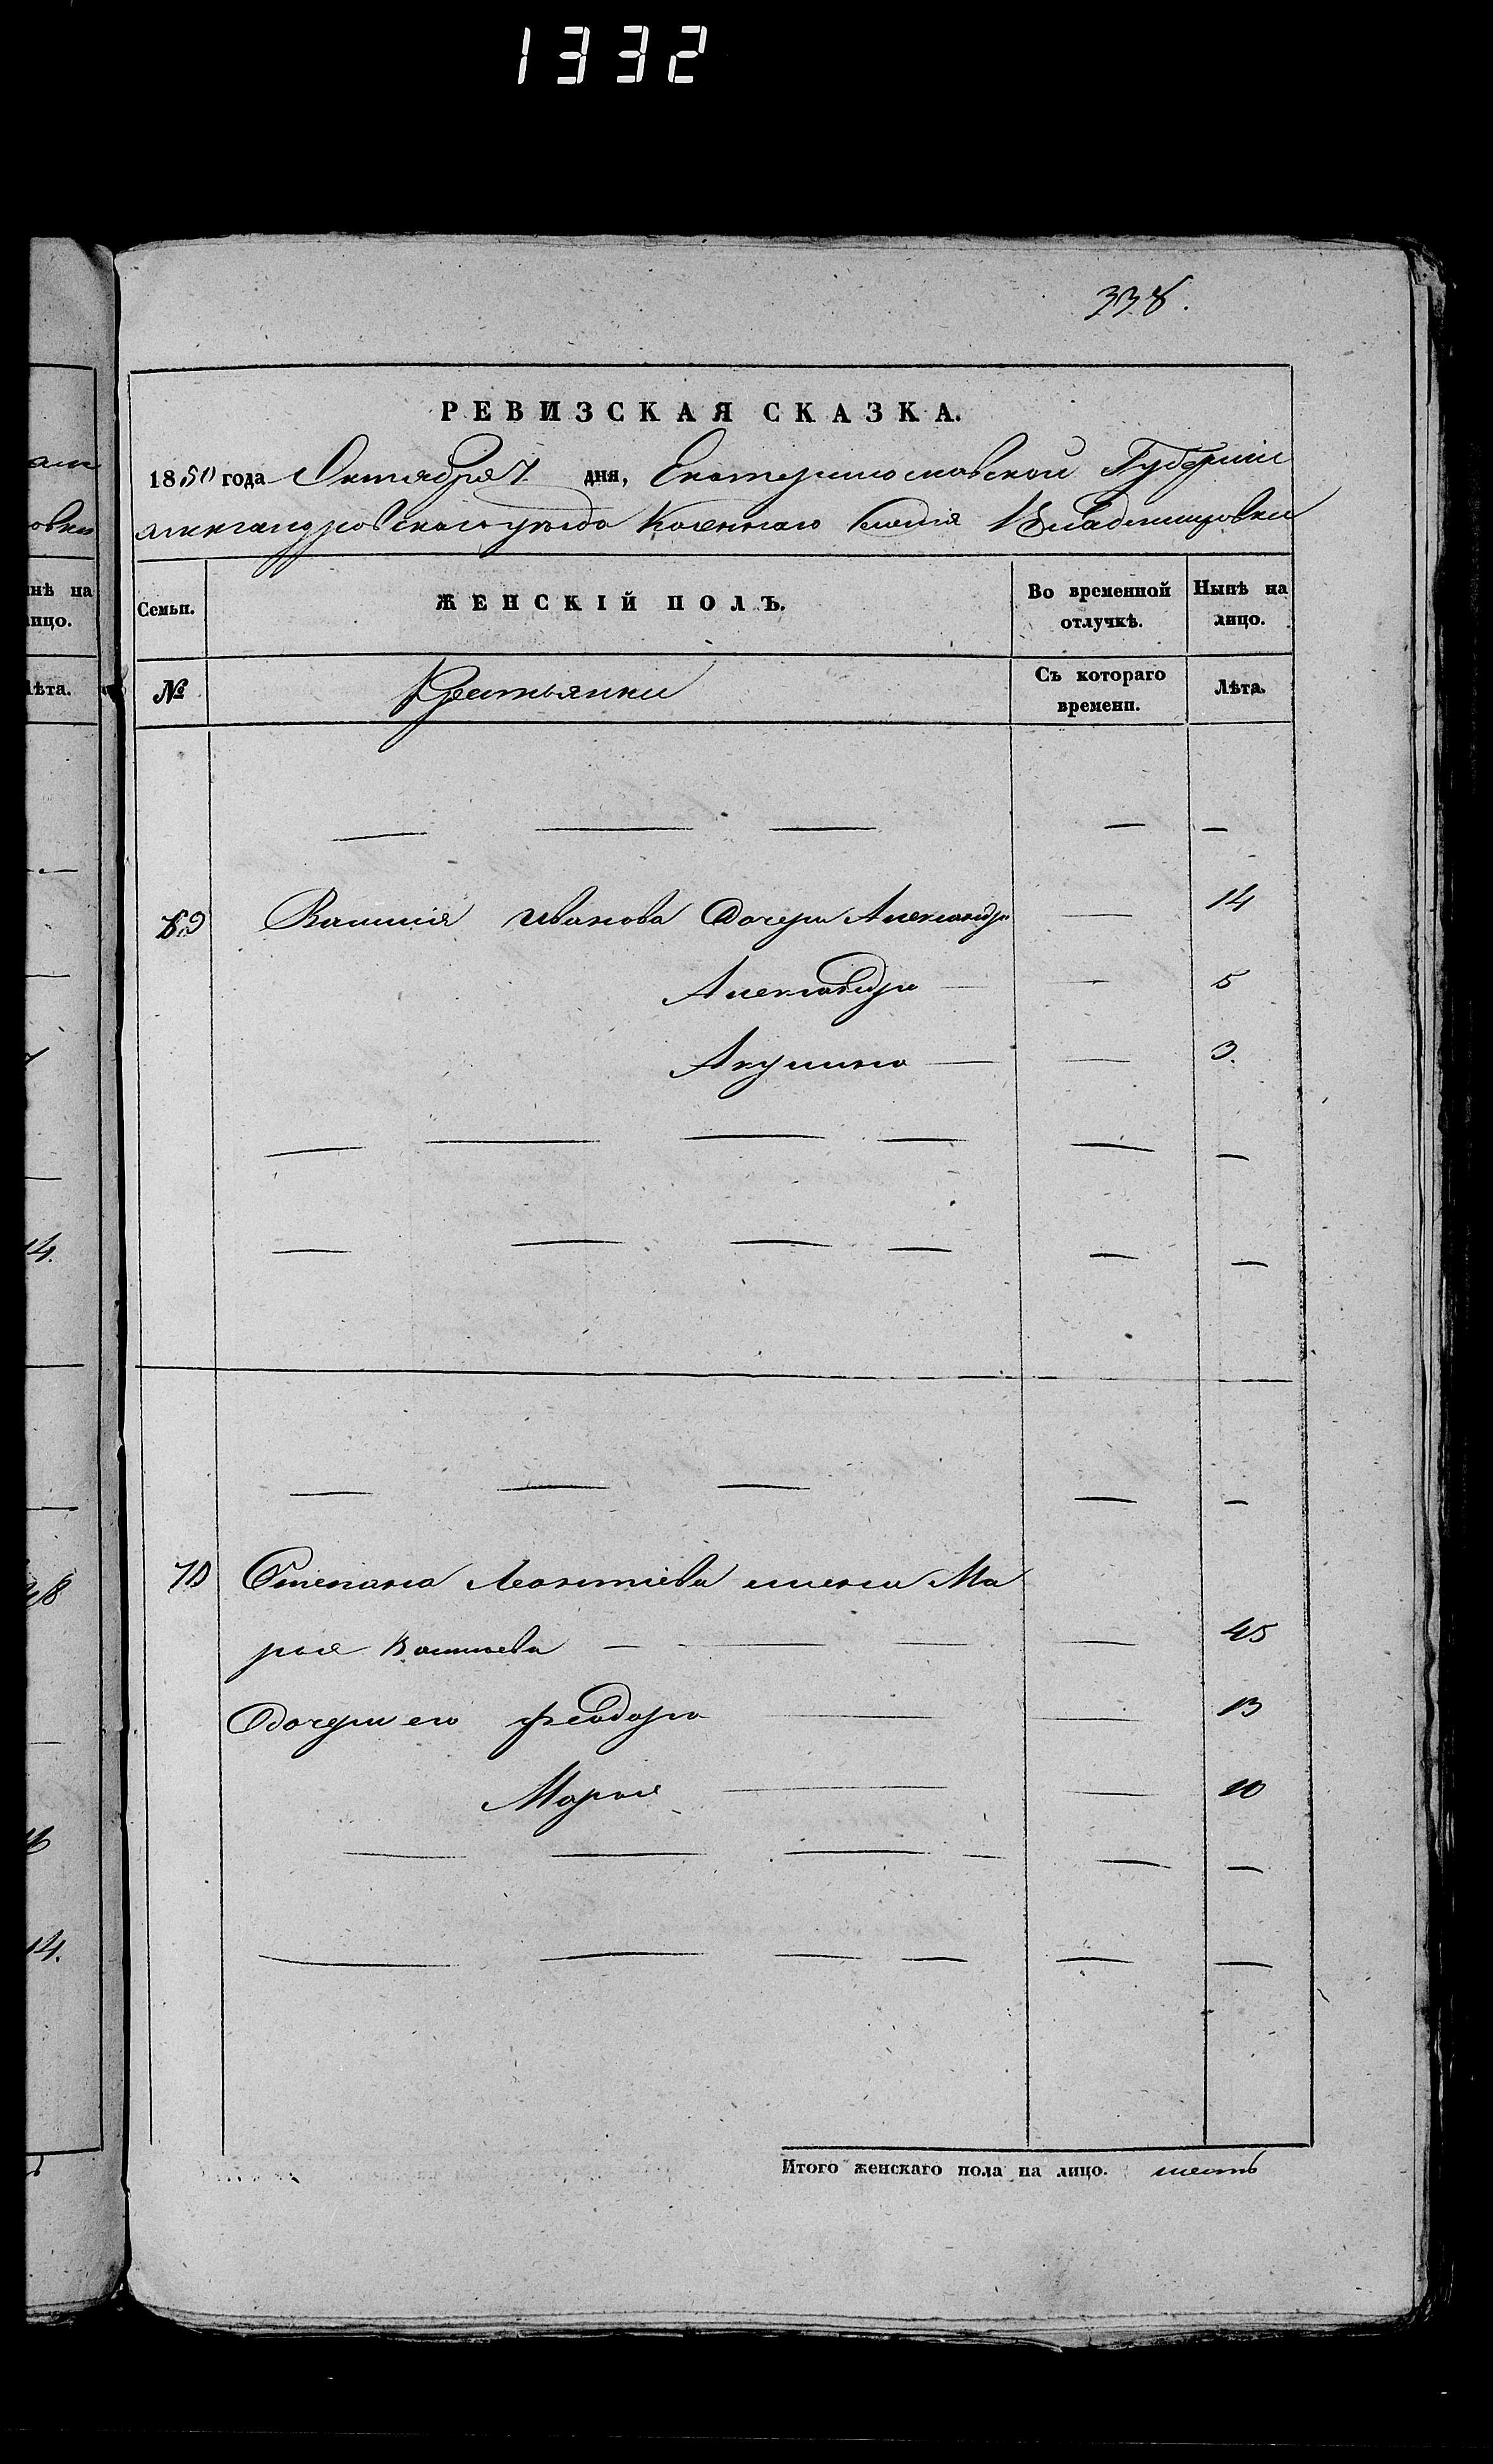 1332
338.
РЕВИЗСКАЯ СКАЗКА.
1850 года Октября 7. дня, Екатеринославской Губерніи
Александровскаго уезда Казеннаго Владимировки
Семьи.
ЖЕНСКІЙ ПОЛЪ.
Во временной отлучкѣ.
Нынѣ на лицо.
№
Крестьянки
Съ котораго времени.
Лѣта.
— — — — —
69 Василія Иванова Дочери Александра — 14
Александра — — 5
Акулина — — 3.
— — — — — —
— — — — — —
— — — — —
70 Степана Леонтіева жена Ма
рья Васильева — — — — 45
Дочери его Феодора — — 13
Марья — — 10
— — — — — —
— — — — — —
Итого женскаго пола на лицо. шесть